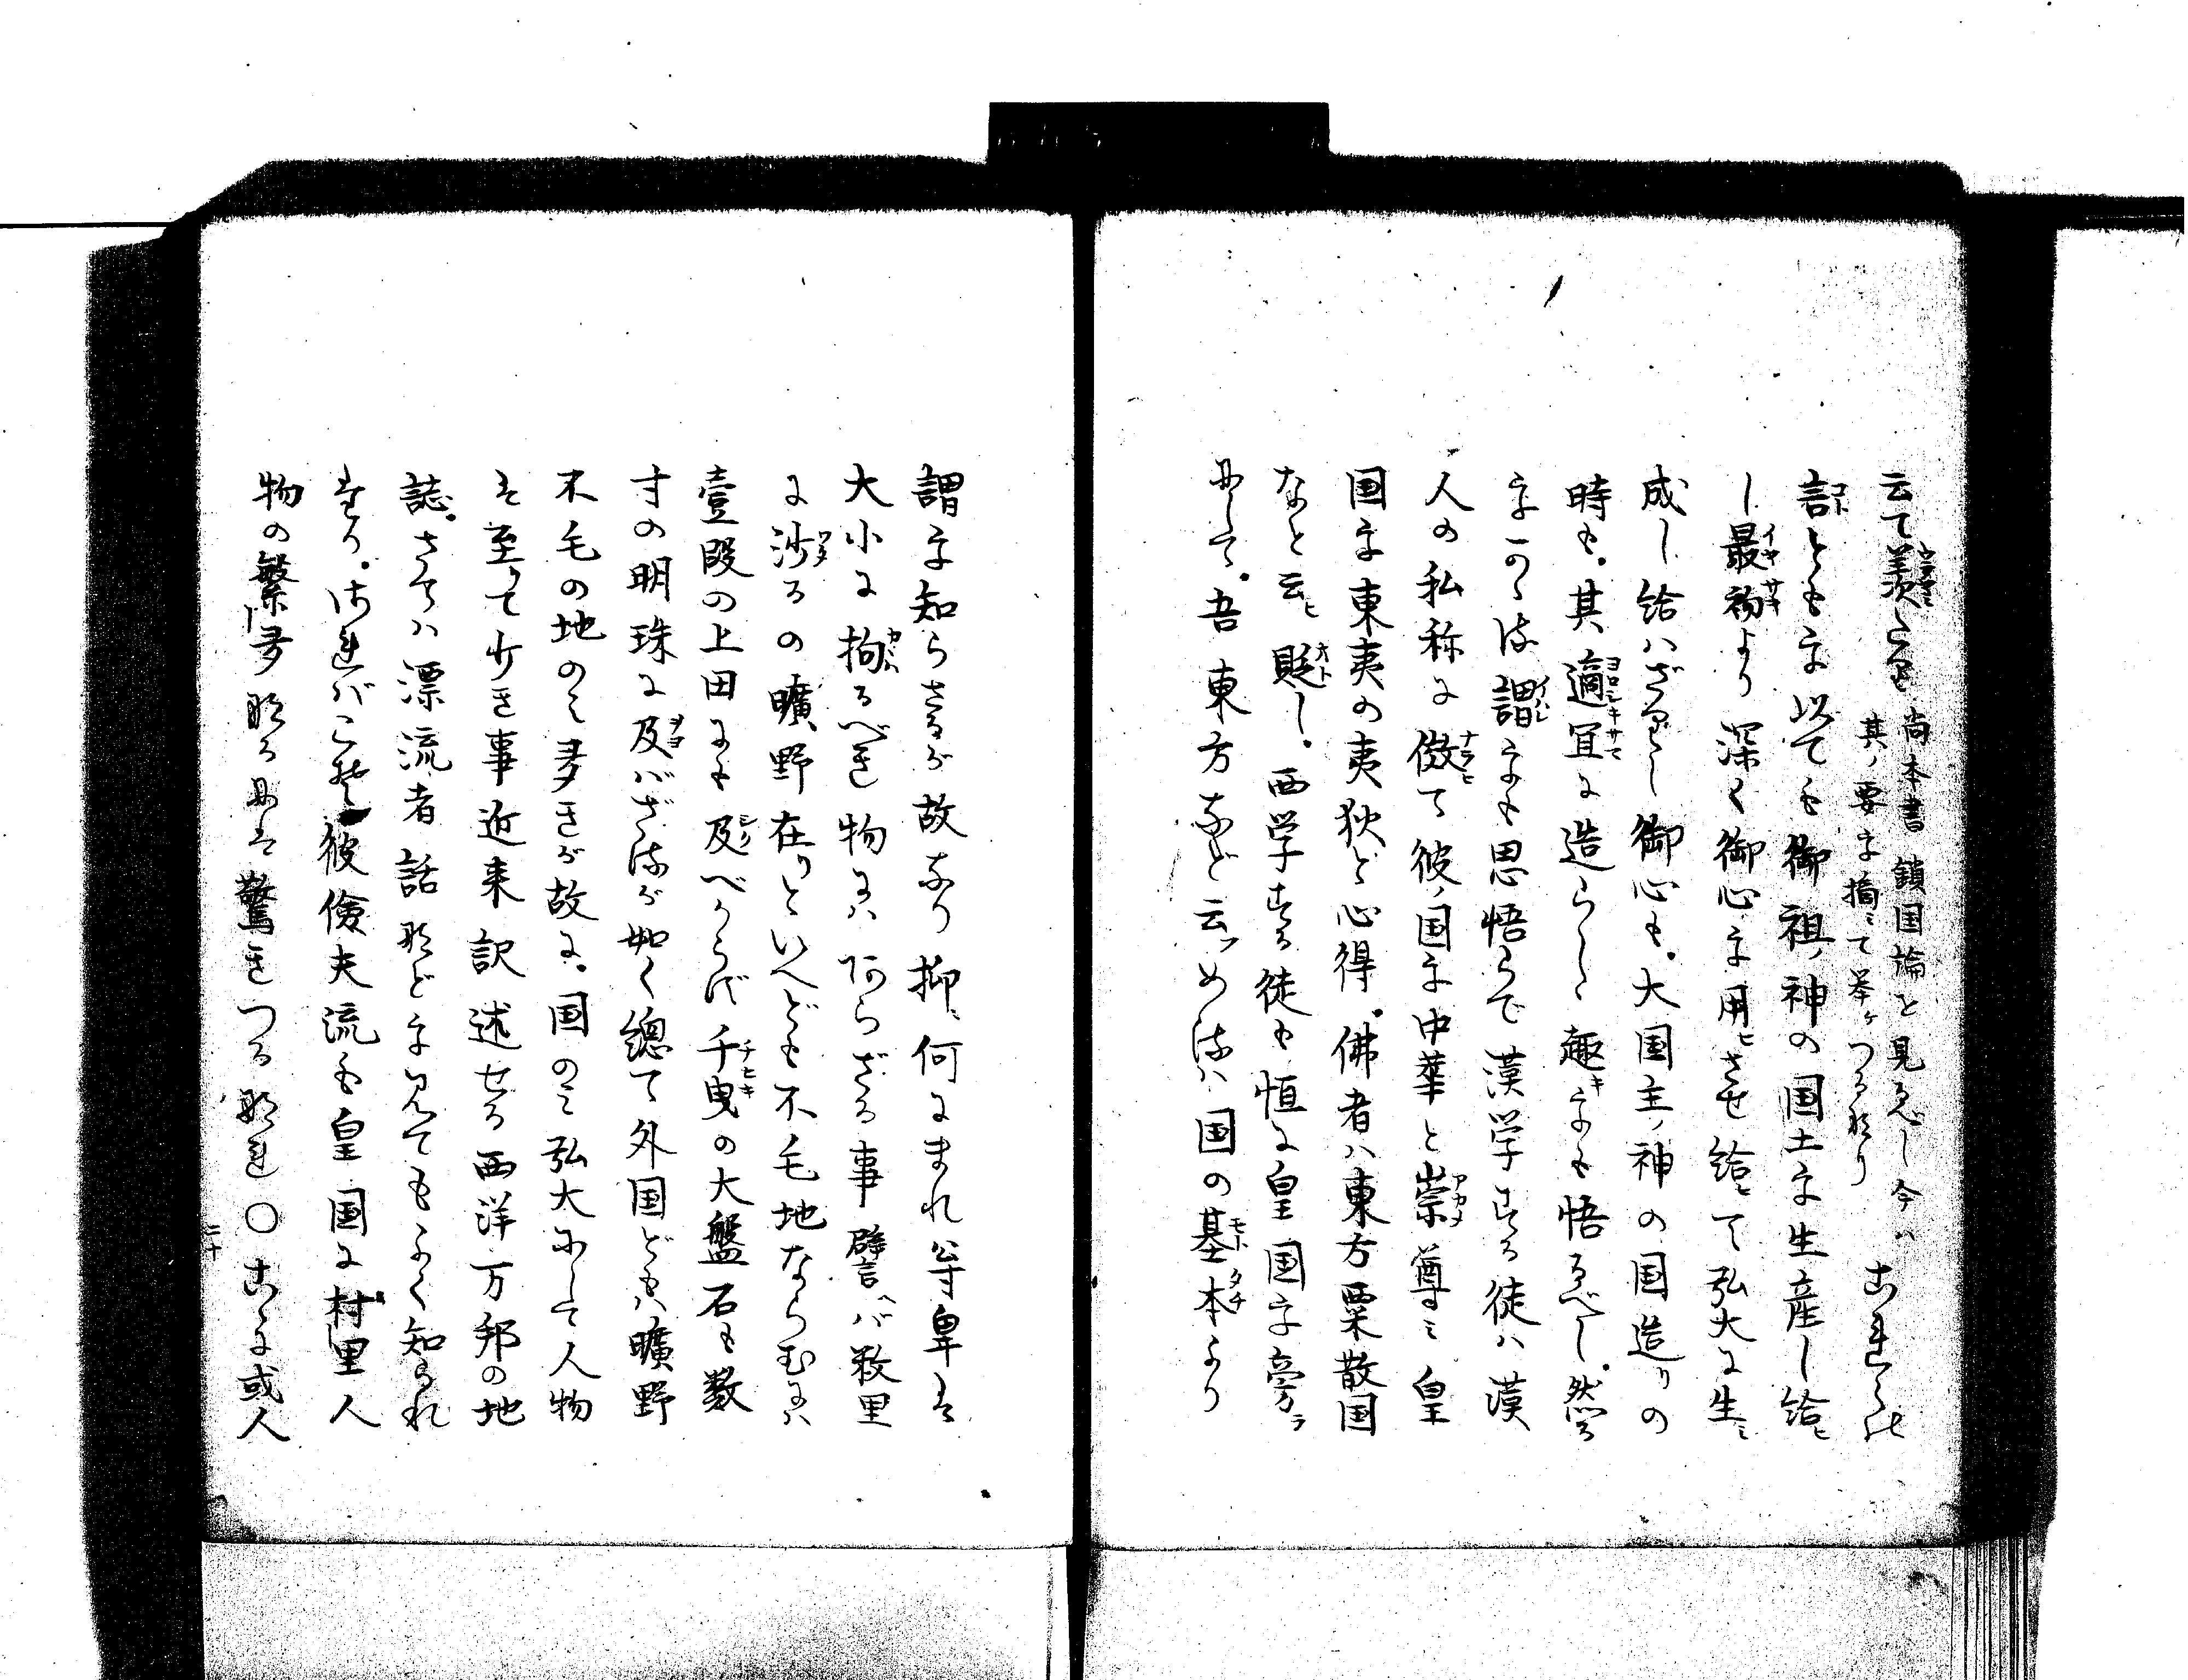 云て羨たり 尚本書鎖国論を見るべし今ハ
其ノ要を摘ミて挙ケつる那り これらの
言どもを以ても御祖ノ神の国土を生産し給ヒ
し最初より深く御心を用ヒさせ給ヒて弘大に生ミ
成し給ハざりし御心も。大国主ノ神の国造リの
時も。其ノ適宜に造らしゝ趣キをも悟るべし。然る
をかゝる謂をも思悟らで漢学する徒ハ漢
人の私称に傚て彼ノ国を中華と崇尊ミ皇
国を東夷の夷狄ぞ心得。佛者ハ東方粟散国
なと云ヒ貶し。西学する徒も恒に皇国を旁ラ
にして。吾東方など云ツめるハ国の基本より
謂を知らざるが故なり抑ミ何にまれ尊卑は
大小に拘るべき物にハ阿らざる事譬ヘバ数里
に渉るの曠野在リといへども不毛地ならむにハ
壹段の上田にも及べからず千曳の大盤石も数
寸の明珠に及バざるが如く總て外国どもハ曠野
不毛の地のミ多きが故に。国のミ弘大にして人物
は至て少き事近来訳述せる西洋万邦の地
誌。さてハ漂流者話那どを見てもよく知られ
たり。されバこそ彼儉夫流も皇国に村里人
物の繁多那るには驚きつる那れ〇こゝに或人
二十